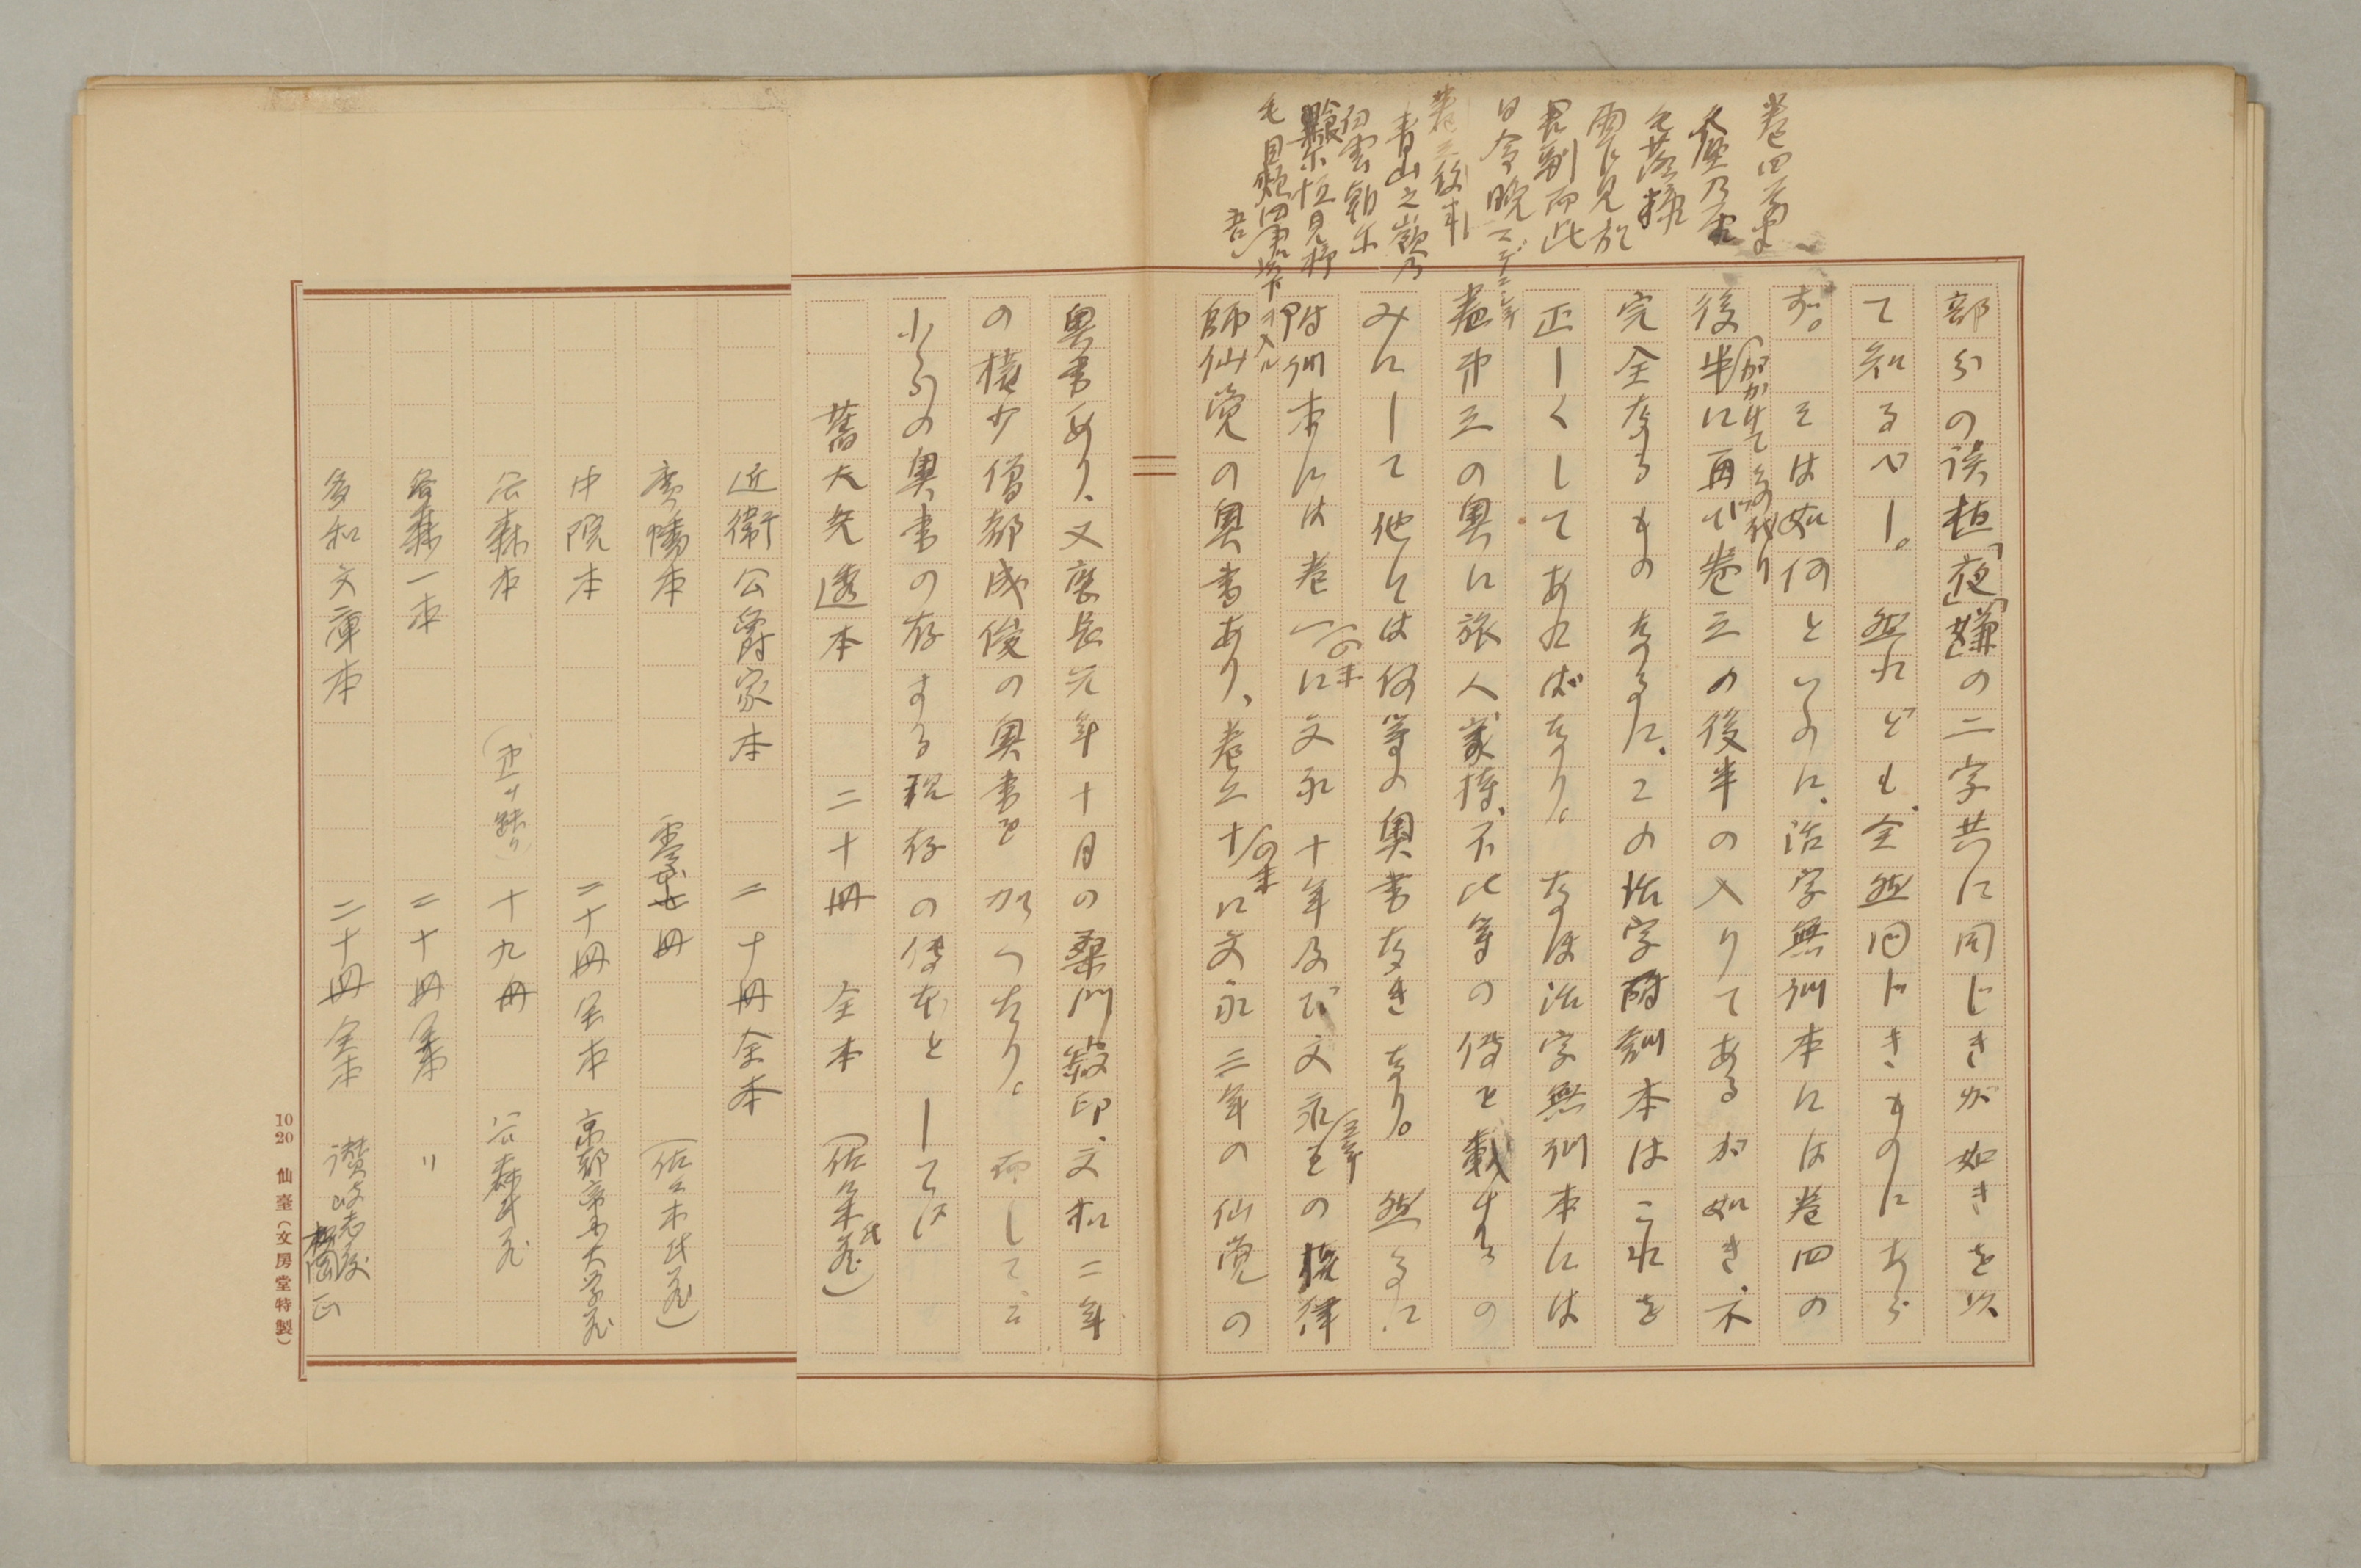 巻四
久堅乃
毛落粮
雨尓見於
君副而此
日令晩マデニシテ
巻三ノ後半
青山之嶺乃
白雲朝尓
食尓恒見杼
毛目頬四吾君ヨリ入ル
部分の誤植「夜」「嫌」の二字共に同じきが如きを以
て知るべし。然れども、全然同じきものにあら
ず。そは如何といふに、活字無訓本には巻四の
後半(がかけてその代り)に再び巻三の後半の入りてあるが如き、不
完全なるものなるに、この活字附訓本はこれを
正しくしてあればなり。なほ活字無訓本には
巻第三の奥に旅人家持、不比等の伝を載するの
みにして他には何等の奥書なきなり。然るに、
附訓本には巻一の末に文永十年及び文永三年の権律
師仙覚の奥書あり、巻二十の末に文永三年の仙覚の
奥書あり、又應長元年十月の桑門寂印、文和二年
の権少僧都成俊の奥書を加へたり。而して、こ
れらの奥書の存する現存の伝本としては
蕎大夫透本 二十冊 全本 (佐々木氏蔵)
近衛公爵家本 二十冊全本
廣幡本 零本 冊 (佐々木氏蔵)
中院本 二十冊全本 京都帝国大学蔵
谷森本 十九冊 谷森氏蔵
谷森一本 二十冊 全本 〃
多和文庫本 二十冊全本 讃岐志度 松岡
10 20 仙臺(文房堂特製)